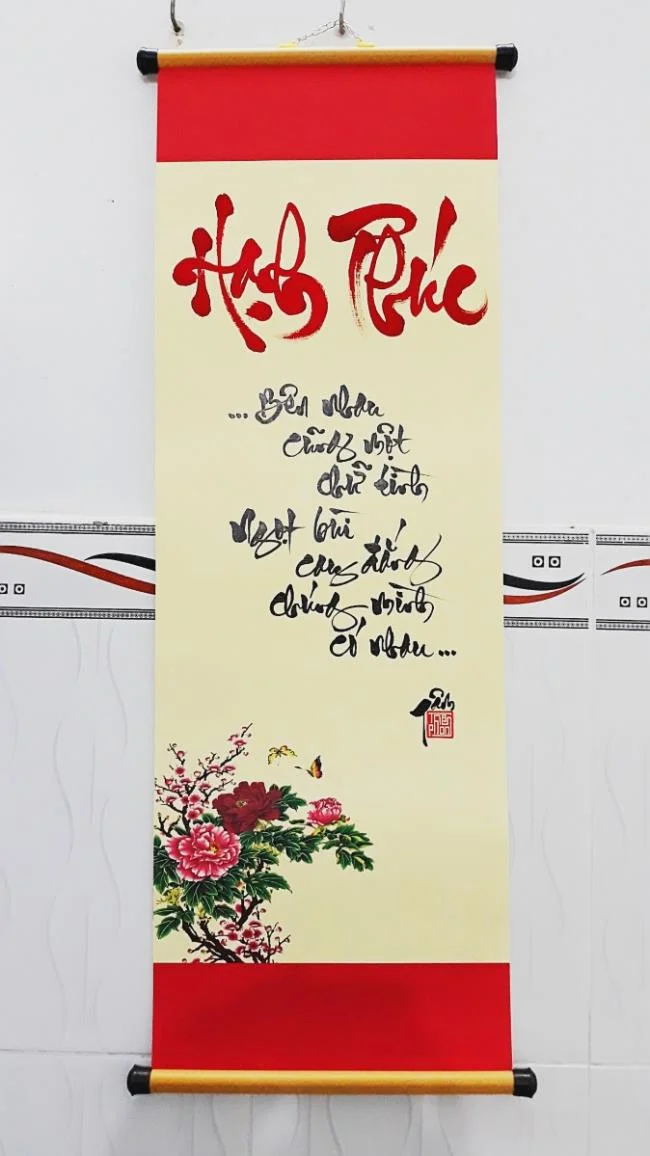 Hạnh Phúc
... Bên nhau
cũng một
chữ tình
Ngọt bùi
cay đắng
chúng mình
có nhau ...